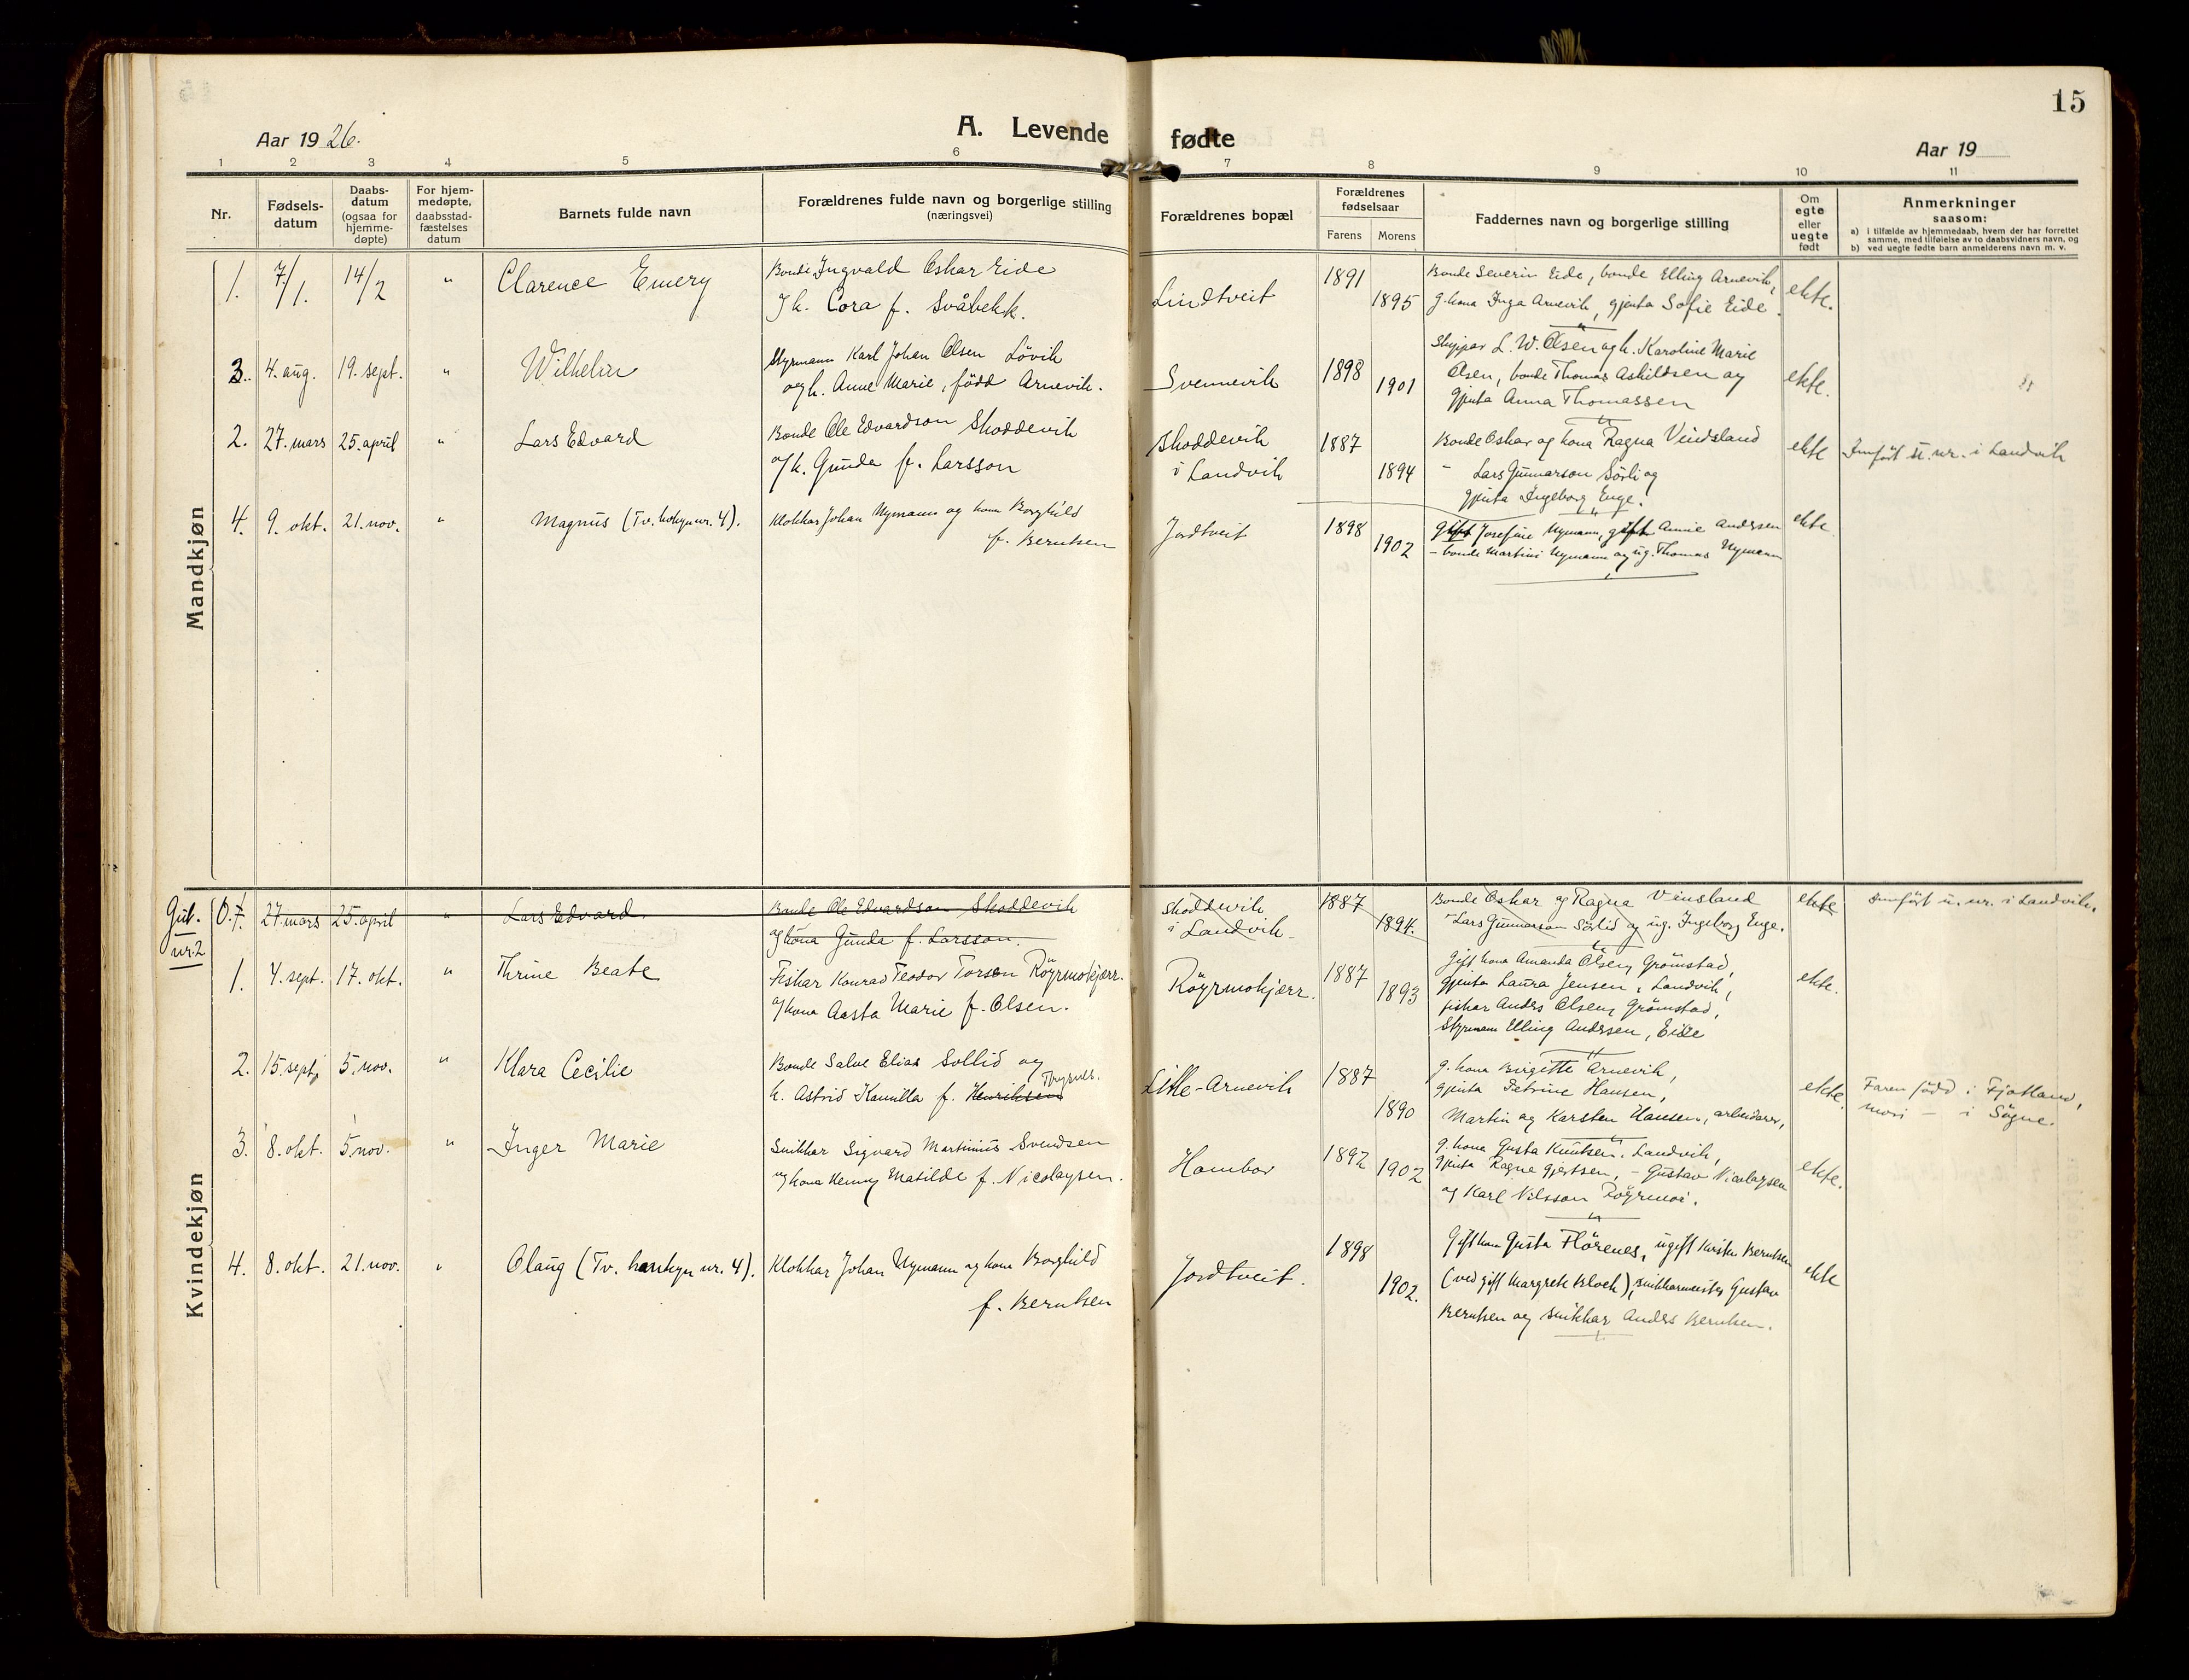 15
A. Levende fødte
Aar 1926.
Aar 19
1 2 3 4 5 6 7 8 9 10 11
Nr.
Fødsels-
datum
Daabs-
datum
(ogsaa for
hjemme-
døpte)
For hjem-
medøpte,
daabsstad-
fæstelses
datum
Barnets fulde navn
Forældrenes fulde navn og borgerlige stilling
(næringsvei)
Forældrenes bopæl
Forældrenes
fødselsaar
Farens Morens
Faddernes navn og borgerlige stilling
Om
egte
eller
uegte
født
Anmerkninger
saasom:
a) i tilfælde av hjemmedaab, hvem der har forrettet
samme, med tilføielse av to daabsvidners navn, og
b) ved uegte fødte barn anmelderens navn m. v.
Mandkjøn
1. 7/1. 14/2 " Clarence Emery
Bonde Ingvald Oskar Eide
og k. Cora f. Svåbekk.
Lindtveit
1891
1895
Bonde Severin Eide, bonde Elling Arnevik,
g. kona Inga Arnevik, gjenta Sofie Eide.
ekte.
3. 4. aug. 19. sept. " Wilhelm
Styrmann Karl Johan Olsen Lövik
og k. Anne Marie, född Arnevik.
Svennevik
1898
1901
Skipper L. W. Olsen og k. Karoline Marie
Olsen, bonde Thomas Askildsen og
gjenta Anna Thomassen
ekte.
2. 27. mars 25. april " Lars Edvard
Bonde Ole Edvardson Skoddevik
og k. Gunda f. Larsson
Skoddevik
i Landvik
1887
1894
Bonde Oskar og kona Ragna Vindsland
- Lars Gunnarson Sörli og
gjenta Ingeborg Enge.
ekte
Innfört u. nr. i Landvik
4. 9. okt. 21. nov. " Magnus (Tv. kvkyn nr. 4).
Klokkar Johan Nymann og kona Borghild
f. Berntsen
Jordtveit
1898
1902
gift Josefine Nymann, gift Annie Andersen
- bonde Martini Nymann og ug. Thomas Nymann
ekte
Kvindekjøn
Gut.
nr. 2
0.7. 27. mars 25. april " Lars Edvard.
Bonde Ole Edvardson Skoddevik
og kona Gunda f. Larsson.
Skoddevik
i Landvik
1887
1894.
Bonde Oskar og Ragna Vinsland
- Lars Gunnarson Sörlid og ug. Ingeborg Enge.
ekte
Innfört u. nr. i Landvik.
1. 4. sept. 17. okt. " Thrine Beate
Fiskar Konrad Teodor Torsen Röyrmokjærr.
og kona Aasta Marie f. Olsen.
Röyrmokjærr.
1887
1893
Gift kona Amanda Olsen, Grömstad,
gjenta Laura Jensen, Landvik,
fiskar Anders Olsen, Grömstad,
Styrmann Elling Andersen, Eide
ekte.
2. 15. sept. 5. nov. " Klara Cecilie
Bonde Salve Elias Sollid og
k. Astrid Kamilla f. Henriksen
Litle-Arnevik
1887
1890
g. kona Birgitte Arnevik,
gjenta Petrine Hansen,
Martin og Karsten Hansen, arbeidarar,
ekte.
Faren född i Fjotland,
mori - i Sögne.
3. 8. okt. 5 nov. " Inger Marie
Snikkar Sigvard Martinius Svendsen
og kona Henny Matilde f. Nicolaysen.
Hombor
1892
1902
g. kona Gusta Knutsen, Landvik,
gjenta Ragna Gjertsen, - Gustav Nicolaysen
og Karl Nilsson Röyrmoi.
ekte.
4. 8. okt. 21. nov. " Olaug (Tv. hankyn nr. 4).
Klokkar Johan Nymann og kona Borghild
f. Berntsen
Jordtveit.
1898
1902.
Gift kona Gusta Flörenes, ugift Kirsten Berntsen
(ved gift Margrete Bloch), snikkarmeister Gustav
Berntsen og snikkar Anders Berntsen.
ekte